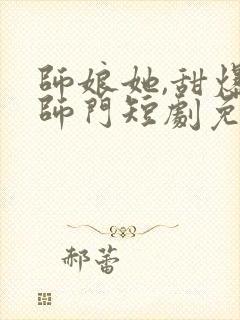 師娘她,甜爆
師門短劇免
郝蕾